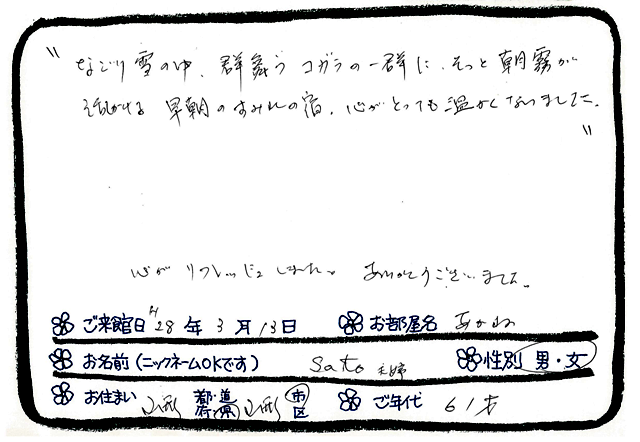 "なごり雪の中、群舞うコガラの一群に、そっと朝霧が
早朝のすみれの宿、心がとっても温かくなりました。"
心がリフレッシュしました。ありがとうございました。
ご来館日 H28年3月13日 お部屋名 あかね
お名前(ニックネームOKです) Sato 夫婦 性別 男・女
お住まい 山形 都・道府・県 山形 市区 ご年代 61才